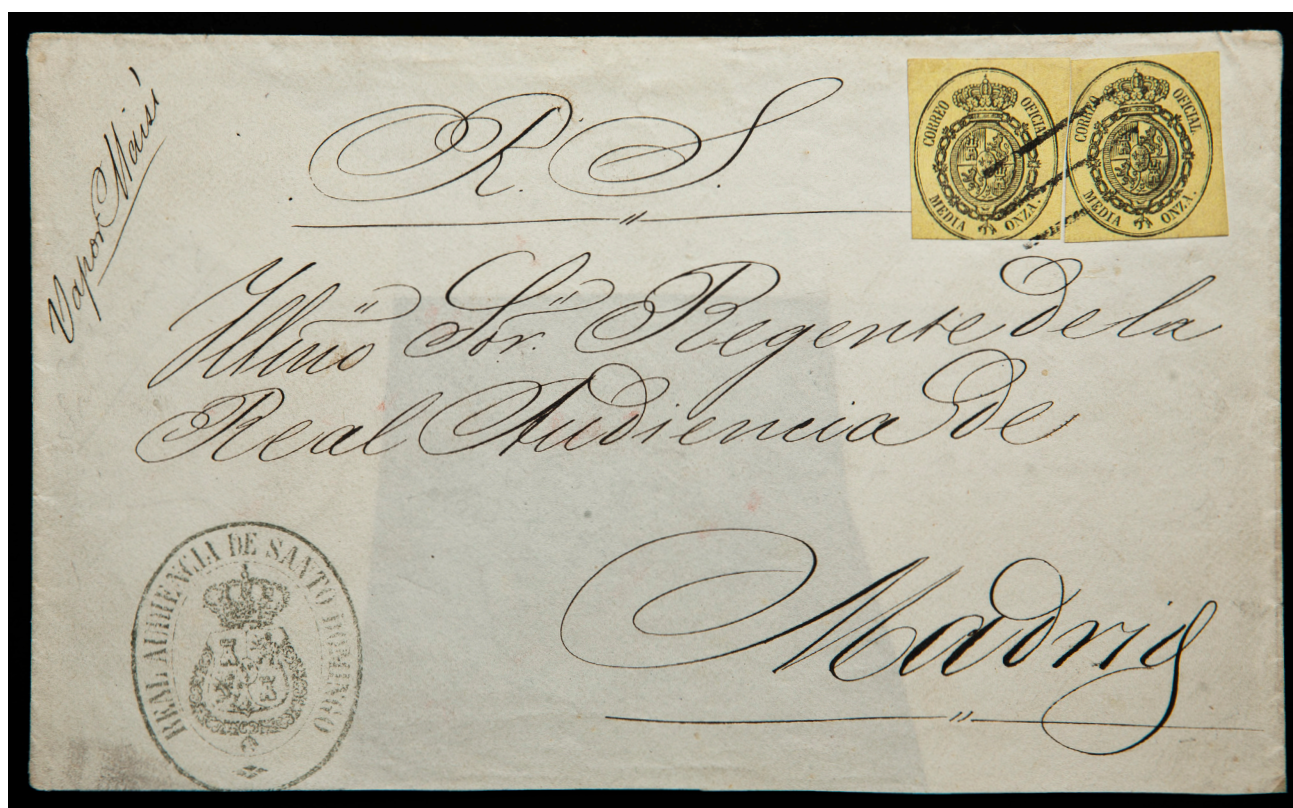 Vapor Maisí
R. S.
CORREO OFICIAL
MEDIA ONZA.
CORREO OFICIAL
MEDIA ONZA.
Yllmo Sor. Regente de la
Real Audiencia de
Madrid
REAL AUDIENCIA DE SANTO DOMINGO